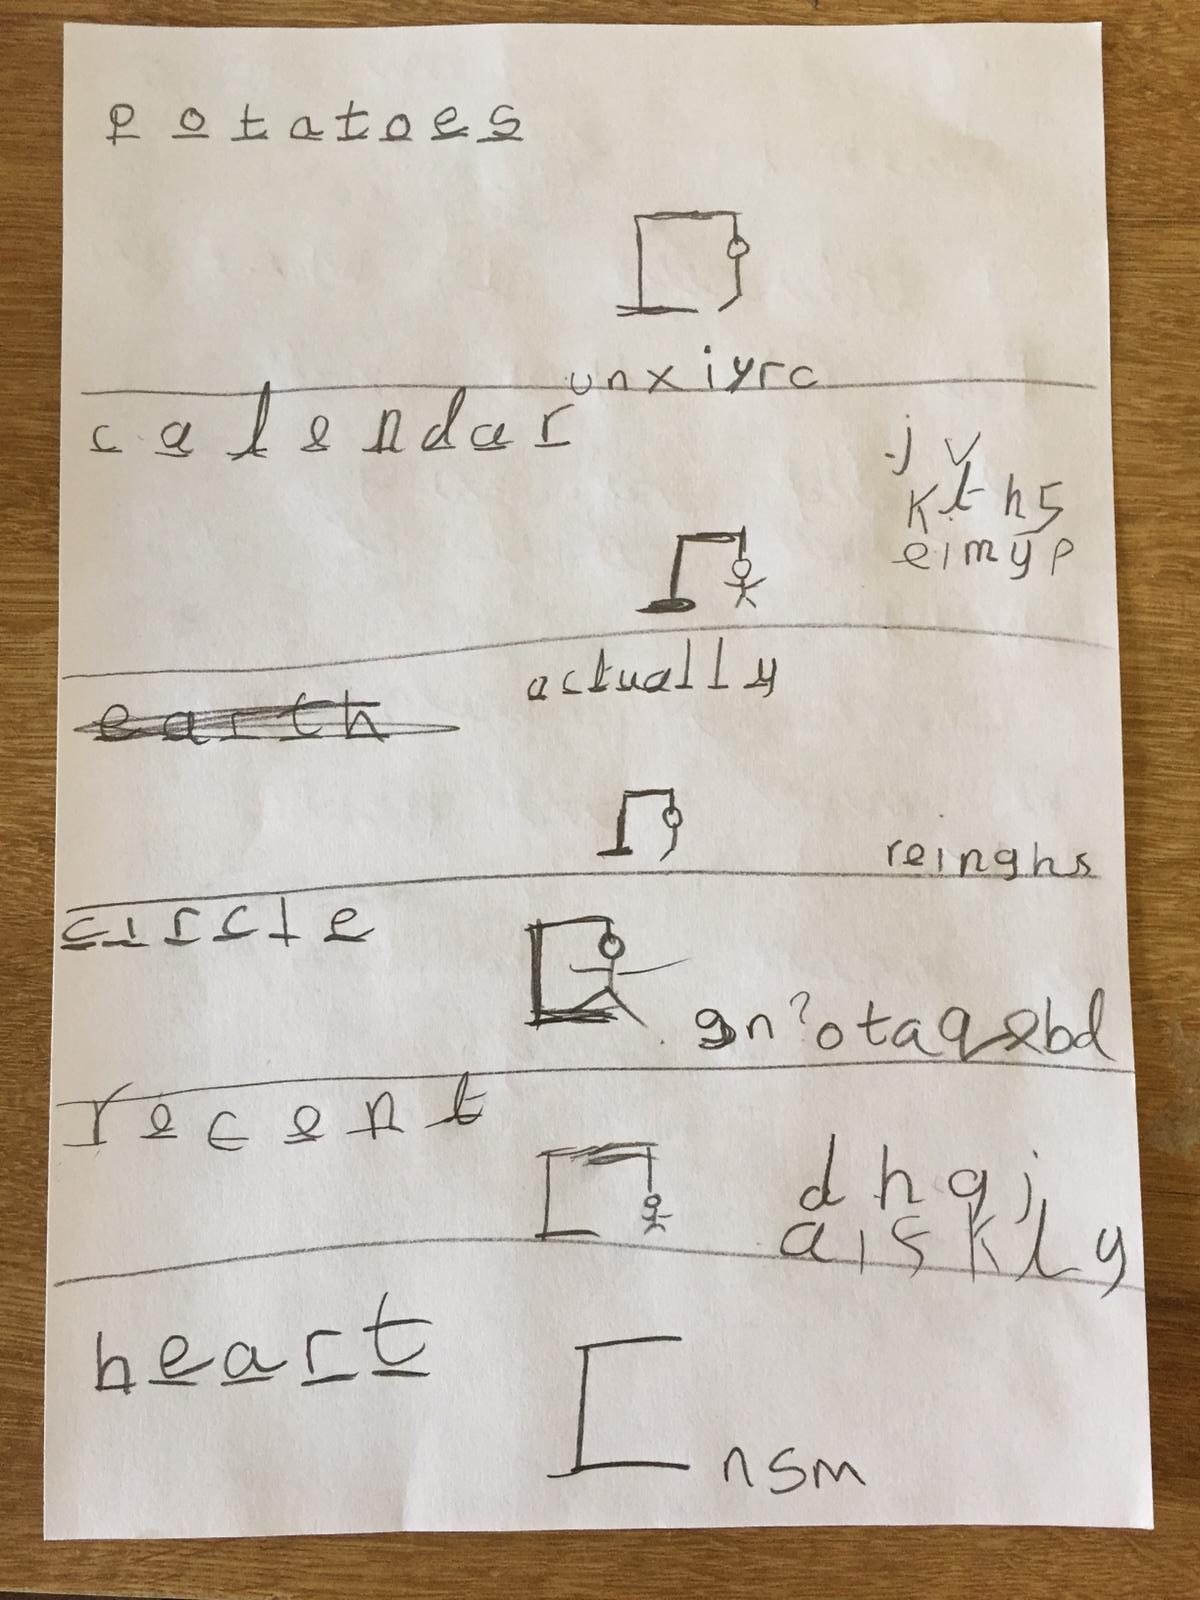 potatoes
unxiyrc
calendar
j v
k t h s
e i m y p
actually
earth
reinghs
circle
recent
d h g j
a i s k l y
heart
nsm